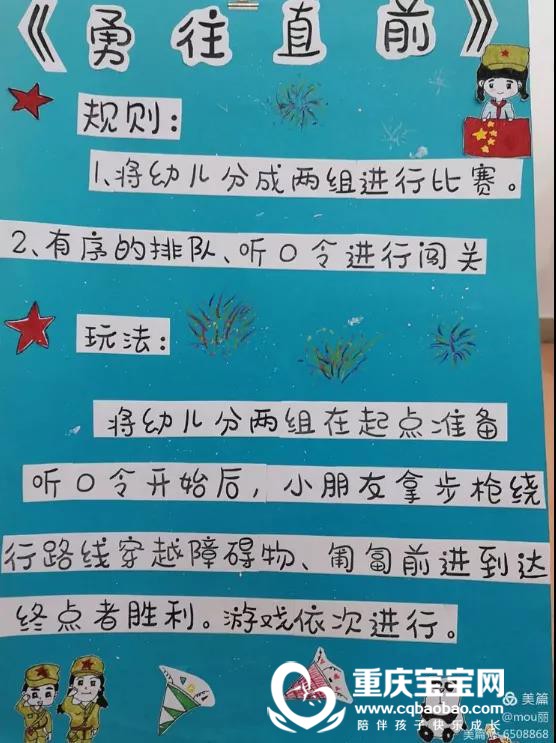 《勇往直前》
规则：
1、将幼儿分成两组进行比赛。
2、有序的排队、听口令进行闯关
玩法：
将幼儿分两组在起点准备
听口令开始后，小朋友拿步枪绕
行路线穿越障碍物、匍匐前进到达
终点者胜利。游戏依次进行。
重庆宝宝网
www.cqbaobao.com
陪伴孩子快乐成长
美篇
@mou丽
美篇号 6508868